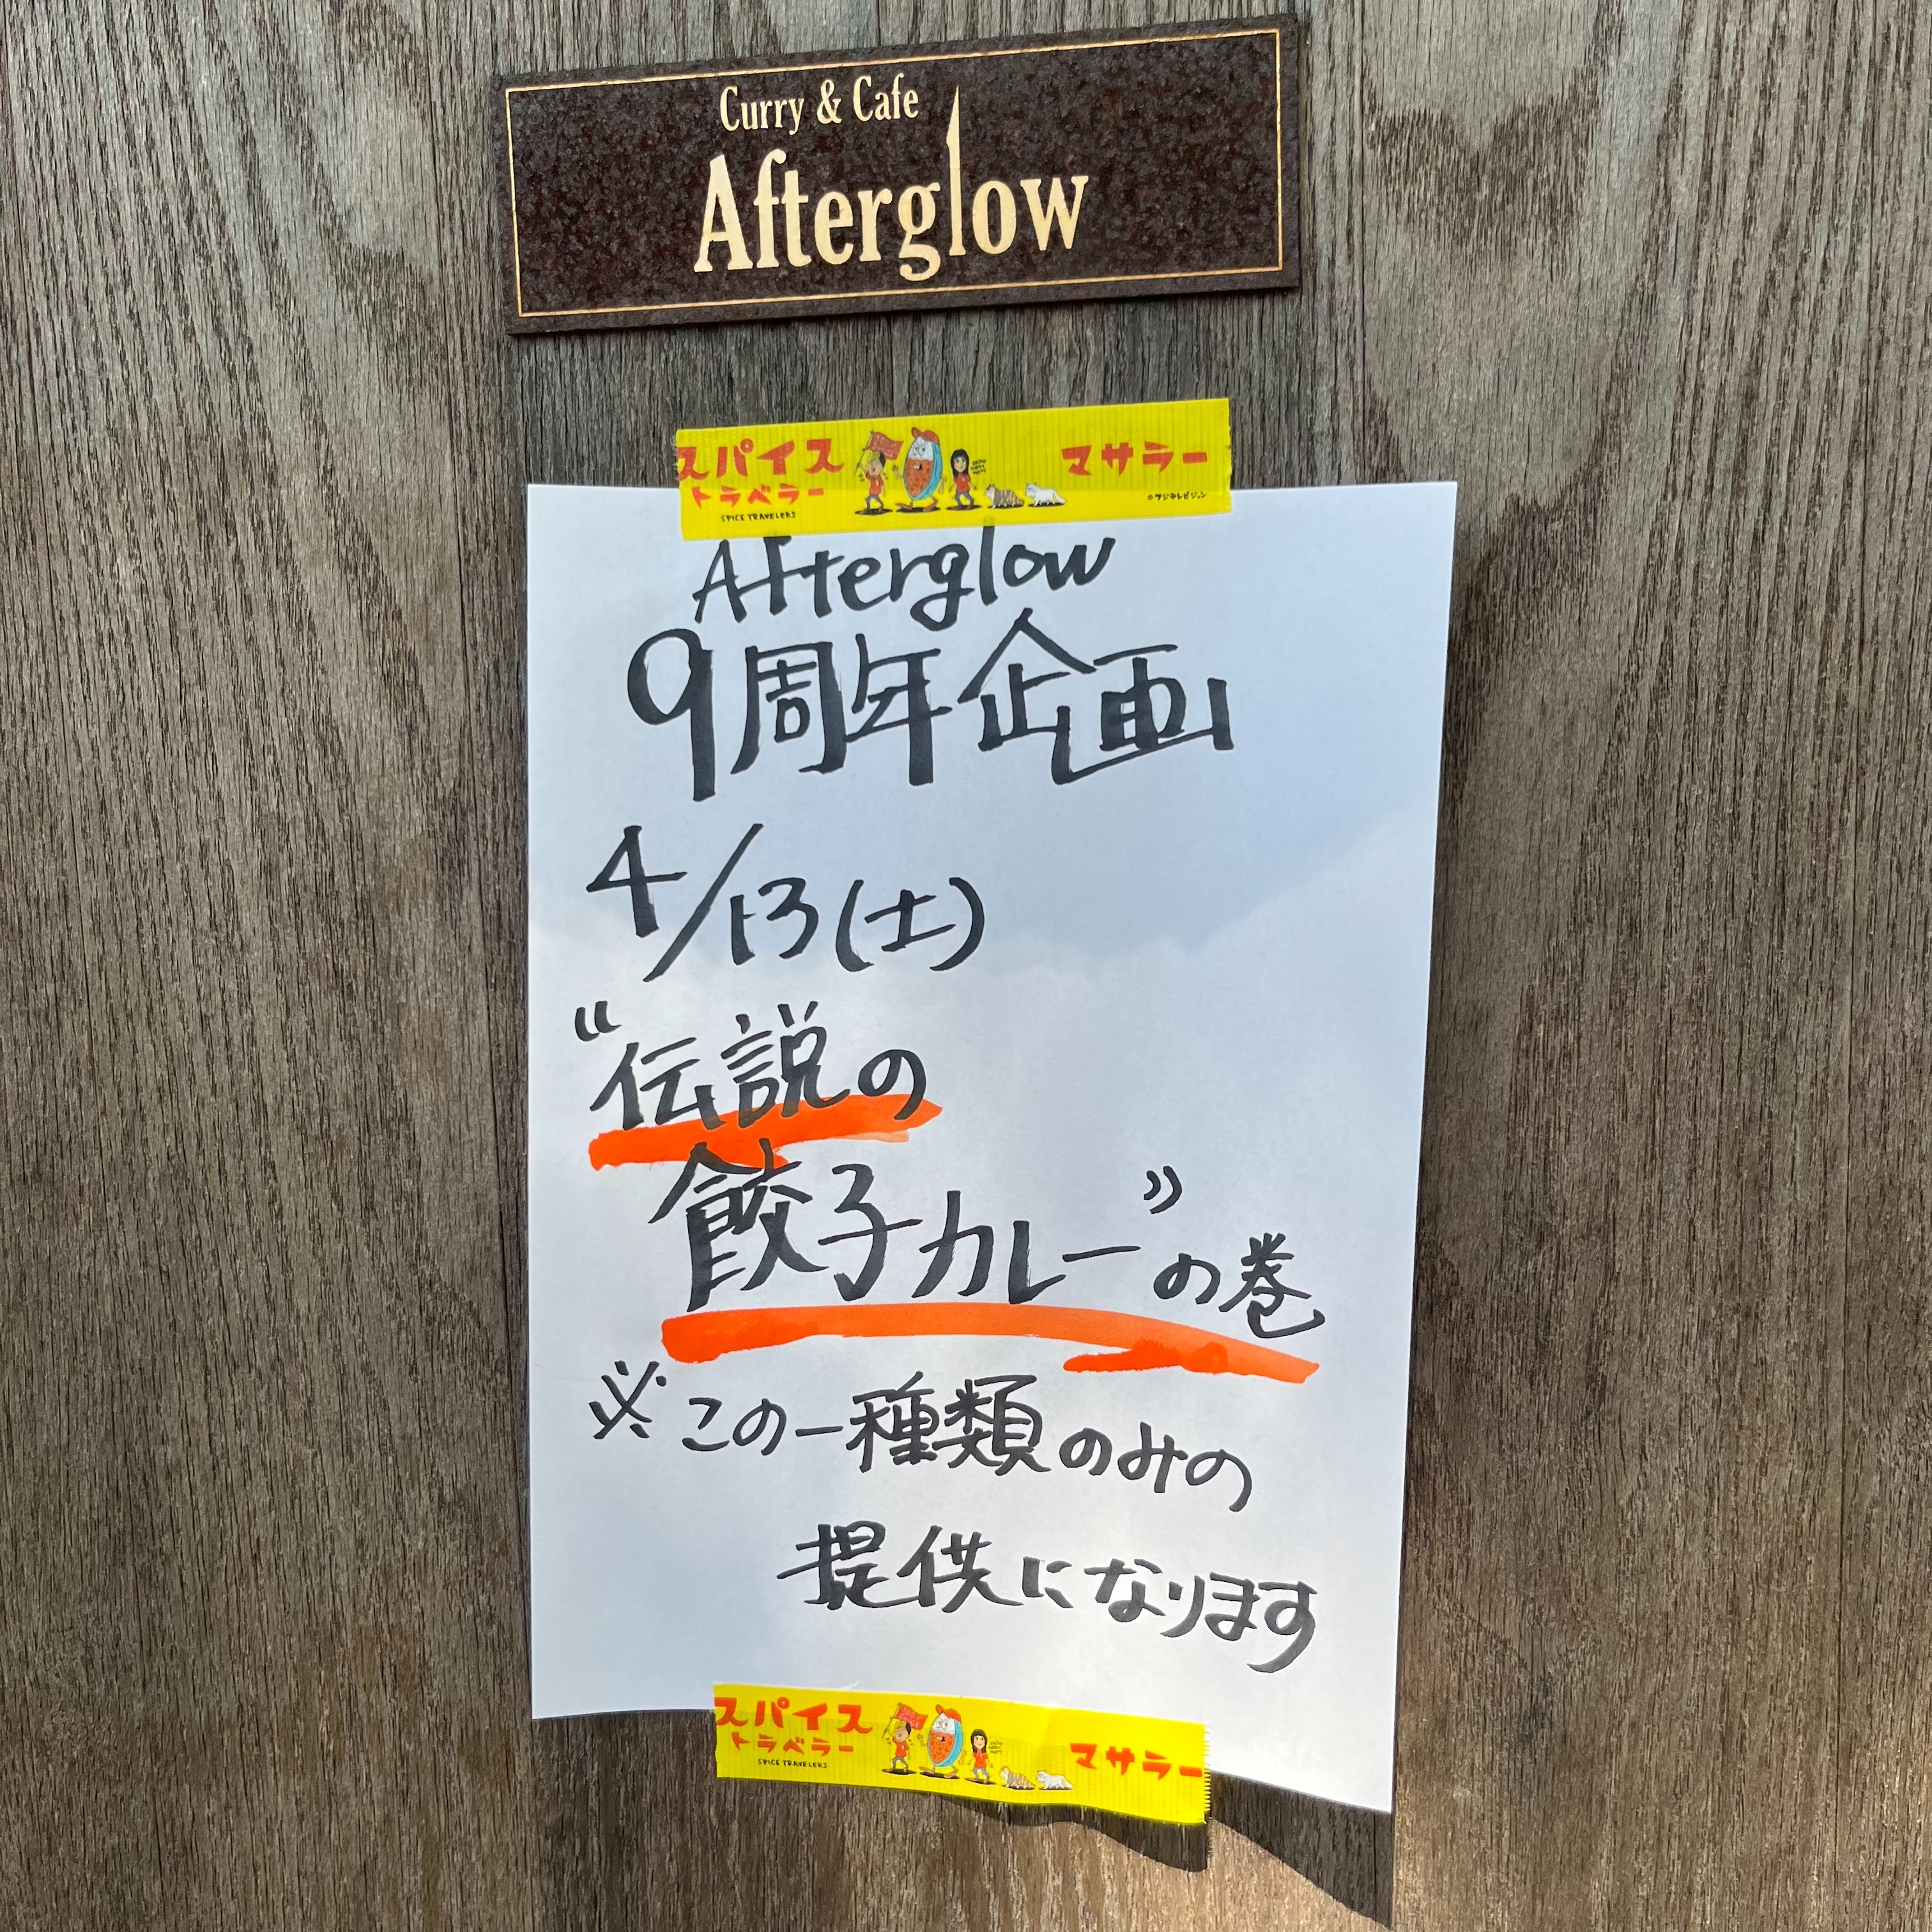 Curry & Cafe
Afterglow
スパイス
トラベラー
SPICE TRAVELERS
マサラー
©フジテレビジョン
Afterglow
9周年企画
4/13(土)
“伝説の
餃子カレー”の巻
※この一種類のみの
提供になります
スパイス
トラベラー
SPICE TRAVELERS
マサラー